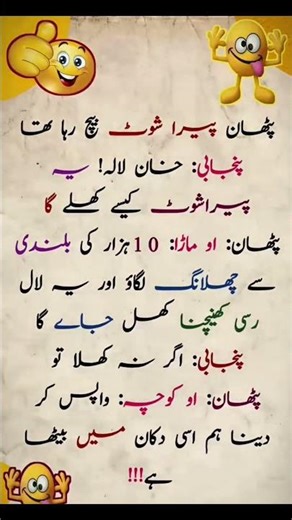 پٹھان پیرا شوٹ بیچ رہا تھا
پنجابی: خان لالہ! یہ
پیراشوٹ کیسے کھلے گا
پٹھان: او ماڑا: 10 ہزار کی بلندی
سے چھلانگ لگاؤ اور یہ لال
رسی کھینچنا کھل جاے گا
پنجابی: اگر نہ کھلا تو
پٹھان: او کوچہ: واپس کر
دینا ہم اسی دکان میں بیٹھا
ہے!!!